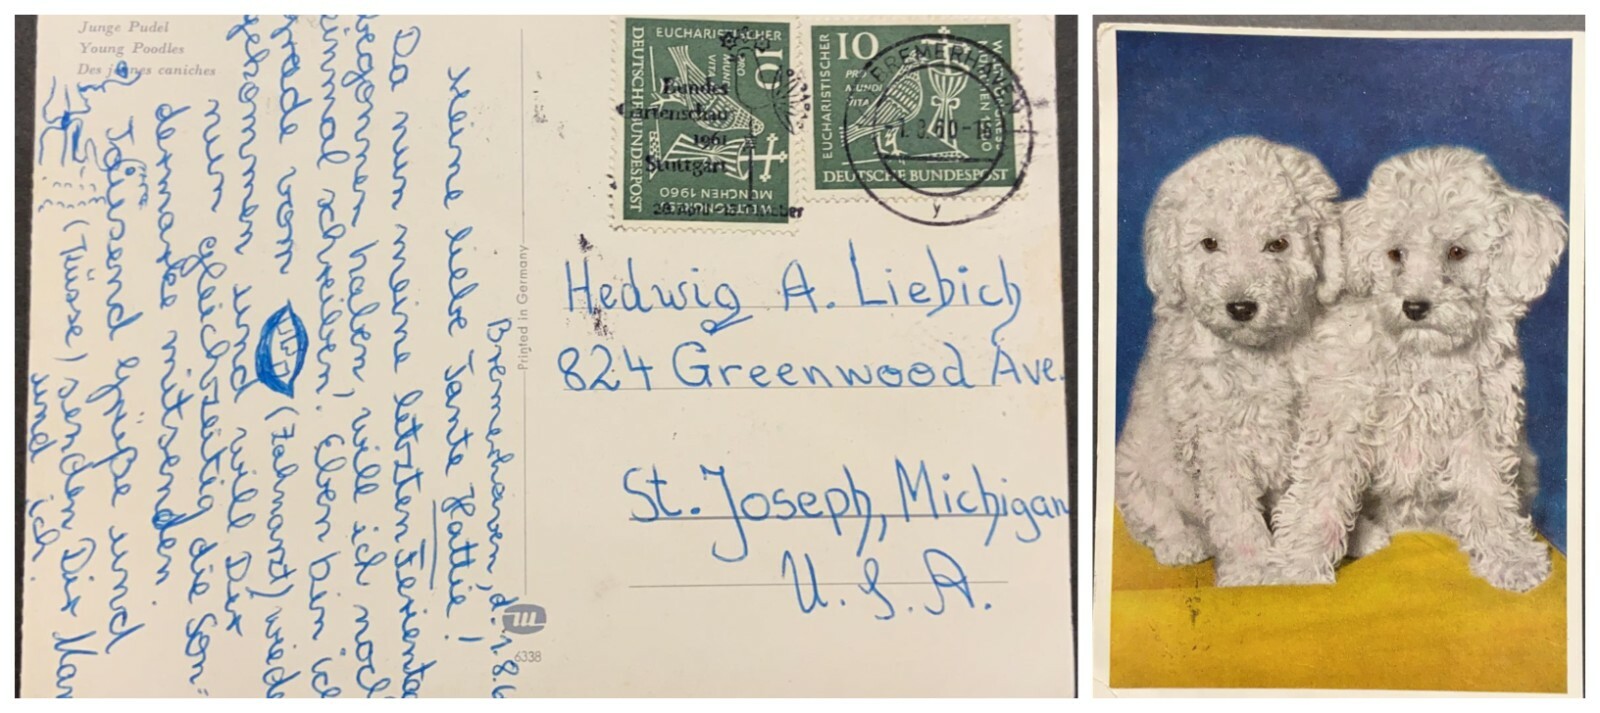 Junge Pudel
Young Poodles
Des jeunes caniches
Bremerhaven, d. 1.8.6
Meine liebe Tante Hattie!
Da nun meine letzten Ferienta
begonnen haben, will ich noch
einmal schreiben. Eben bin ich
gerade vom (Zahnarzt) wied
gekommen und will Dir
nun gleichzeitig die Son=
dermarke mitsenden.
Tausend Grüße und
(Küsse) senden Dir
und ich.
Printed in Germany
m
6338
EUCHARISTISCHER
WELTKONGRESS
MÜNCHEN 1960
PRO
MUNDI
VITA
10
DEUTSCHE BUNDESPOST
Bundes
gartenschau
1961
Stuttgart
10
EUCHARISTISCHER
WELTKONGRESS
MÜNCHEN 1960
PRO
MUNDI
VITA
DEUTSCHE BUNDESPOST
BREMERHAVEN
1.8.60-16
y
Hedwig A. Liebich
824 Greenwood Ave.
St. Joseph, Michigan
U. S. A.